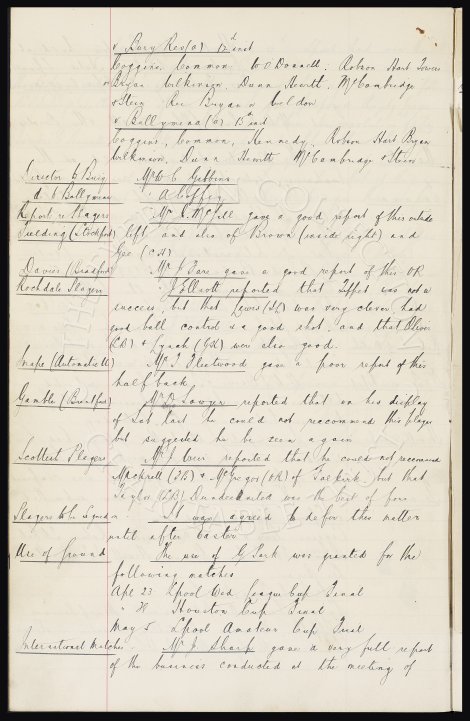 v Bury Res(a) 12th inst
Coggins, Common, W O'Donnell, Robson Hart Towers
Bryan Wilkinson, Dunn Hewitt, McCambridge
& Stein Res Bryan &
v Ballymena (a) 13th inst
Coggins, Common, Kennedy, Robson Hart Bryan
Wilkinson, Dunn Hewitt McCambridge & Stein
Director to Bury Mr W C Gibbins
do to Ballymena A Coffey
Report re Players Mr C. McFell gave a good report of this outside
Fielding (Stockport) left and also of Brown (inside right) and
Gee (C.H)
Davies (Bradford) Mr J Fare gave a good report of this OR
Rochdale Players " J Elliott reported that Tippet was not a
success, but that Lewis (I.L) was very clever, had
good ball control & a good shot, and that Oliver
(R.B) & Lynch (G.K) were also good.
Snape (Accrington) Mr T Fleetwood gave a poor report of this
half back
Gamble (Brentford) Mr W Sawyer reported that on his display
of Sat last he could not recommend this player
but suggested he be seen again
Scottish Players Mr J Weir reported that he could not recommend
(L.B) & McGregor (O.R) of Falkirk, but that
Taylor (L.B) Dundee United was the best of four
Players to be It was agreed to defer this matter
until after Easter
Use of Ground The use of G Park was granted for the
following matches
Apl 23 L'pool Wed. League Cup Final
" 28 Houston Cup Final
May 5 L'pool Amateur Cup Final
International Matches Mr J Sharp gave a very full report
of the business conducted at the meeting of